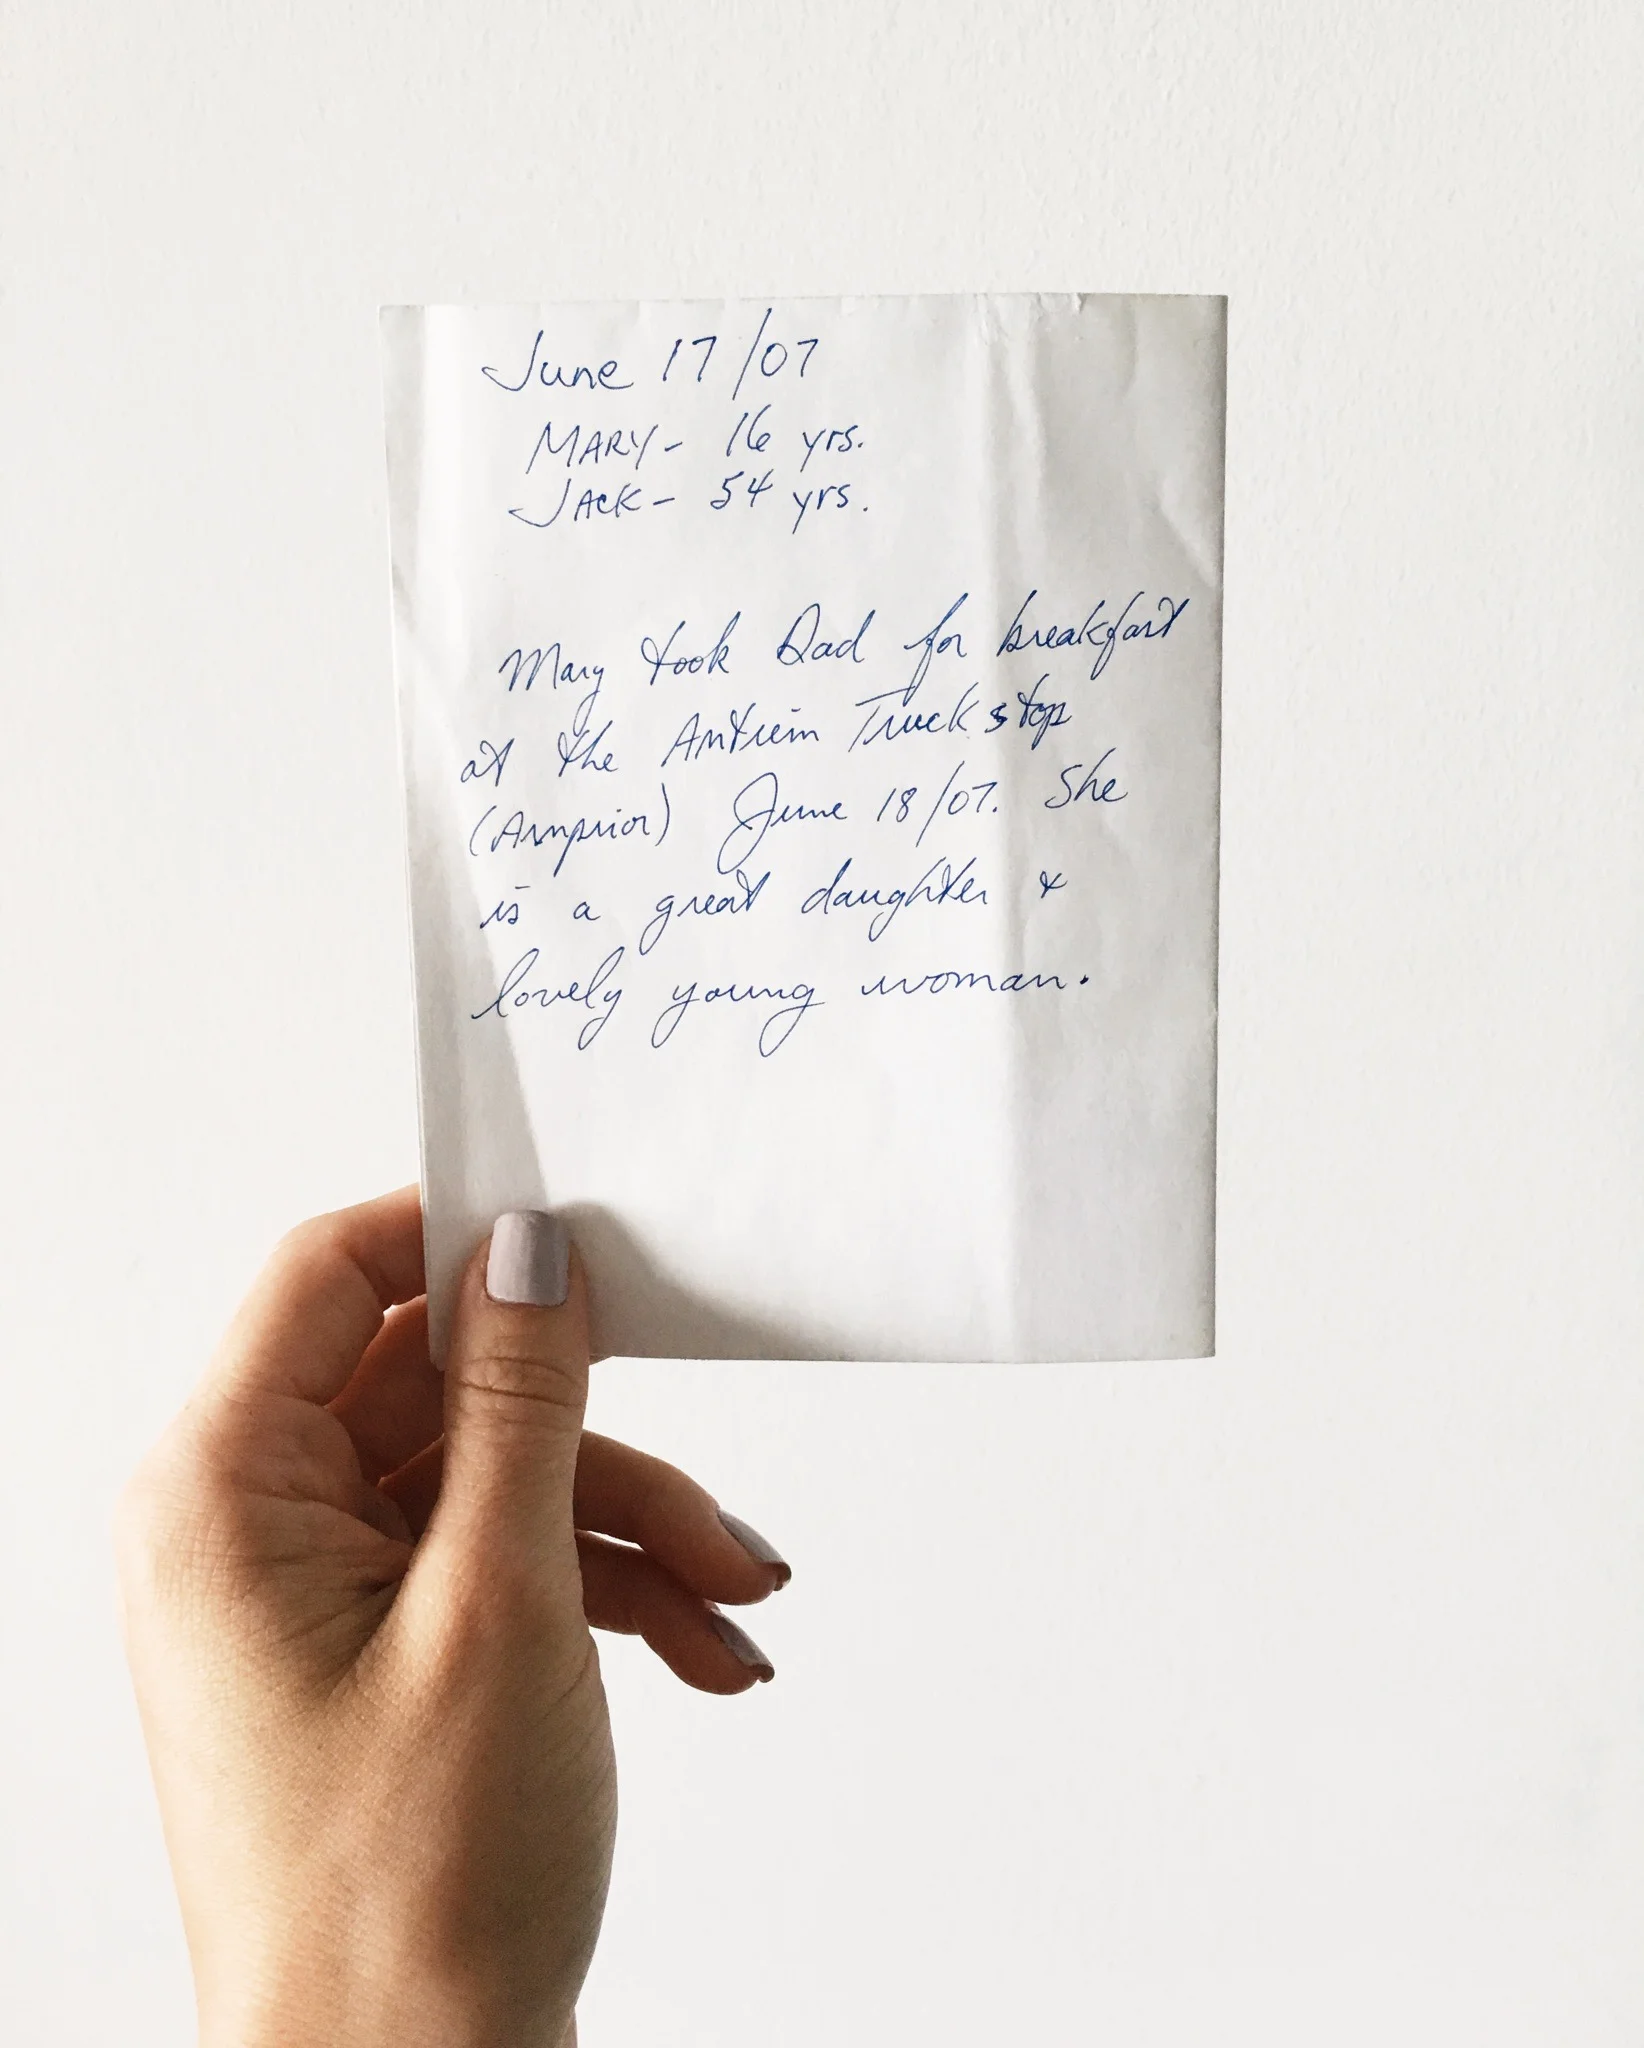 June 17/07
MARY - 16 yrs.
JACK - 54 yrs.
Mary took Dad for breakfast
at the Antrim Truck stop
(Arnprior) June 18/07. She
is a great daughter &
lovely young woman.